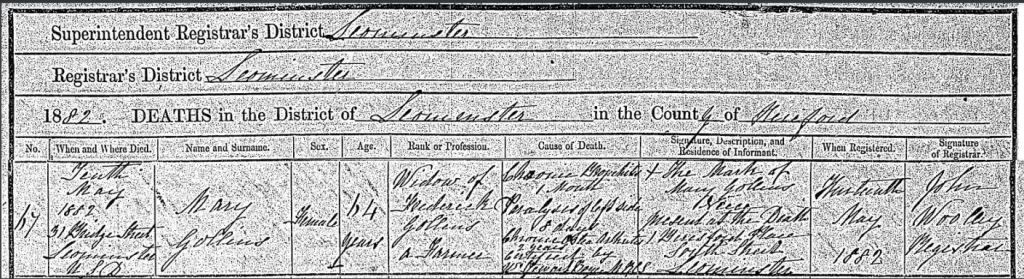 Superintendent Registrar's District Leominster
Registrar's District Leominster
1882. DEATHS in the District of Leominster in the County of Hereford
No. When and Where Died. Name and Surname. Sex. Age. Rank or Profession. Cause of Death. Signature, Description, and Residence of Informant. When Registered. Signature of Registrar.
Tenth
May
1882
31 Bridge Street
Leominster
Mary
Gollins
Female
64
years
Widow of
Frederick
Gollins
a Farmer
Chronic Bronchitis
1 Month
Paralysis of left side
8 days
Chronic
2 years
Certified by
X The Mark of
Mary Gollins
Niece
Present at the Death
South Street
Leominster
May
1882
John
Woolley
Registrar